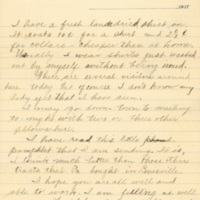 I have a fresh laundried shirt on.
It costs 10¢ for a shirt and 2½¢
for collars - cheaper than at home.
Usually I wear shirts just washed
out by myself without being ironed.
There are several visitors around
here today but of course I don't know any
body yet that I have seen.
I may go down town to washing
to-my
with two or three other
fellows here.
I have read this little
pamphlet that I am sending. It is,
I think much better than those other
tracts that Pa bought in
I hope you are all well and
able to work. I am feeling as well